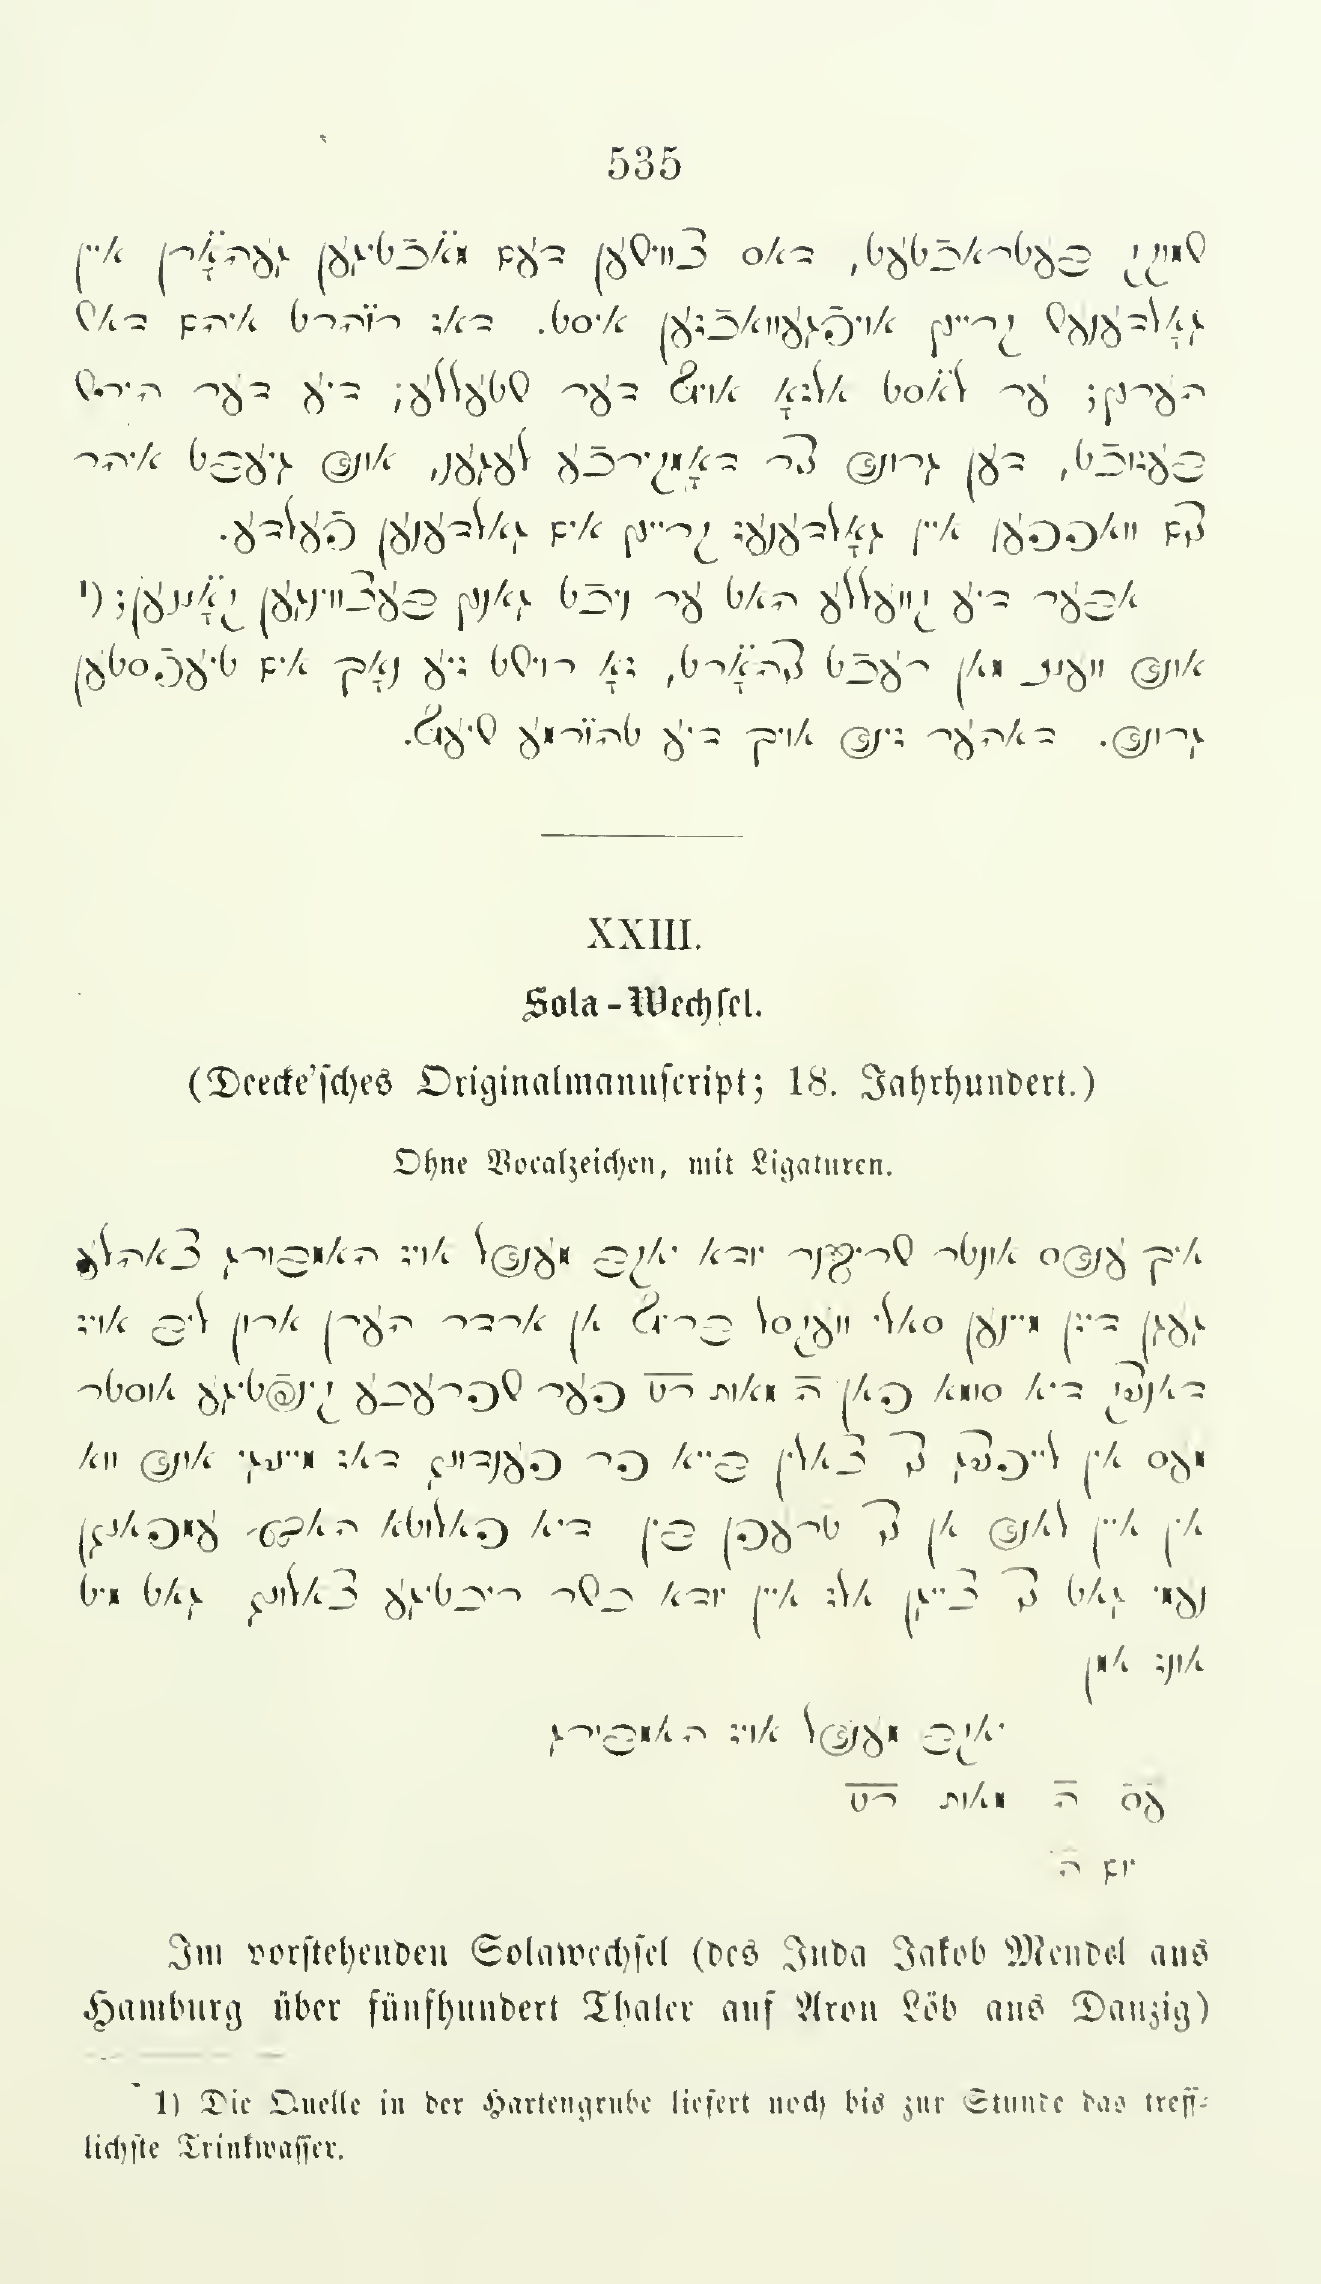 535
שמוקק בעטראכטעט, דאס צווישען דעם מאָכטיגען געהאָרן איין
גאָלדענעס קרייץ אויפגעוואכזען איסט. דאז רויהרט איהם דאס
הערץ; ער לאסט אלזאָ אויף דער שטעללע; דיע דער הירש
בעזוכט, דען גרונד צר דאָמקירכע לעגען, אונד גיעבט איהר
צם וואפפען איין גאָלדענעז קרייץ אים גאלדענען פעלדע.
אבער דיע קוועללע האט ער ניכט גאנץ בעצווינגען קאָננען; (¹
אונד ווענן מאן רעכט צהאָרט, זאָ רוישט זיע נאָך אים טיעפסטען
גרונד. דאהער זינד אויך דיע טהורמע שיעף.
XXIII.
Sola-Wechsel.
(Deecke'sches Originalmanuscript; 18. Jahrhundert.)
Ohne Vocalzeichen, mit Ligaturen.
איך ענדס אונטר שרייבנר יודא יאקב מענדל אויז האמבורג צאהלע
געגן דיזן מיינען סאלי וועקסל בריף אן ארדר הערן ארון ליב אויז
דאנציק דיא סומא פאן ה̄ מאות רט פער שפרעכע קינפטיגע אוסטר
מעס אין לייפציג צו צאלין בייא פר פענדונג דאז מייניגי אונד ווא
אין איין לאנד אן צו טרעפן בין דיא פאלוטא האבע עמפאנגן
נעמי גאט צו צייגן אלז איין יודא כשר ריכטיגע צאלונג גאט מיט
אונז אמן
יאקב מענדל אויז האמבורג
עס ה̄ מאות רט
יום ה̄
Im vorstehenden Solawechsel (des Juda Jakob Mendel aus
Hamburg über fünfhundert Thaler auf Aron Löb aus Danzig)
1) Die Quelle in der Hartengrube liefert noch bis zur Stunde das treff-
lichste Trinkwasser.